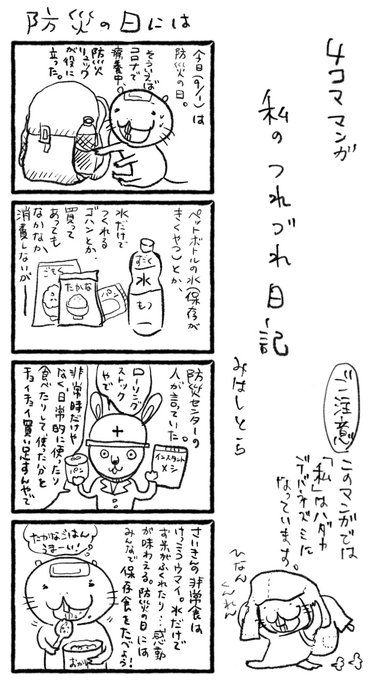 4コママンガ
私のつれづれ日記
みはしとら
ご注意
このマンガでは
「私」はハダカ
デバネズミに
なっています。
ひなん
くんれん
防災の日には
今日(9/1)は
防災の日。
そういえば
コロナで
療養中、
防災
リュック
が役に
立った。
ペットボトルの水(保存が
きくやつ)とか、
水だけで
つくれる
ゴハンとか、
買って
あっても
なかなか
消費しないが――
すごく
水
もつ
ごもく
たかな
パン
防災センターの
人が言っていた。
ローリング
ストック
やで
非常時だけや
なく、日常的に使ったり
食べたりして使った分を
チョイチョイ買い足すんやで
インスタント
メシ
パン
さいきんの非常食は
けっこうウマイ。水だけで
お米がふくれたり…感動
が味わえる。防災の日には
みんなで保存食をたべよう!
たかなごはん
うまーい!
おかし